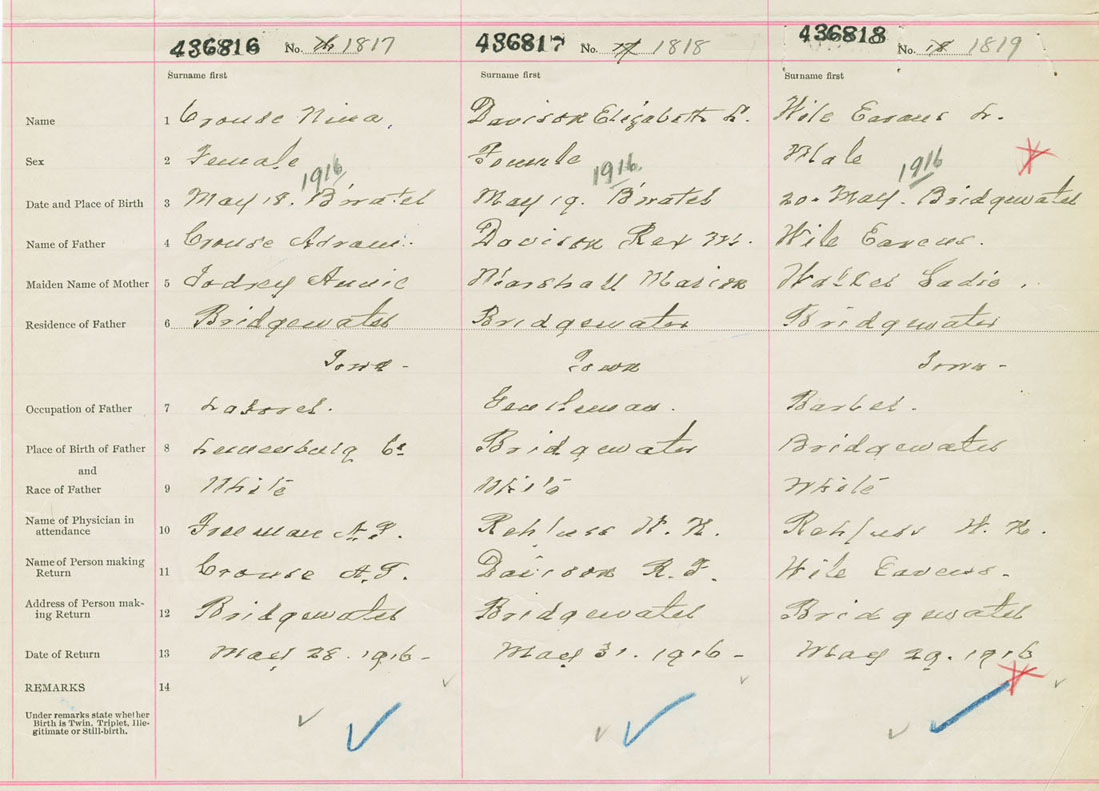 436816 No. 1817 436817 No. 17 1818 436818 No. 18 1819
Surname first Surname first Surname first
Name 1 Crouse Nina, Davison Elizabeth L. Wile L.
Sex 2 Female Female Male
1916 1916 1916
Date and Place of Birth 3 May 18. B'water May 19. B'water 20 - May. Bridgewater
Name of Father 4 Crouse Davison Rex Wile
Maiden Name of Mother 5 Jodrey Annie Marshall Marion Walker Sadie.
Residence of Father 6 Bridgewater Bridgewater Bridgewater
Town - Town Town -
Occupation of Father 7 Laborer. Gentleman. Barber.
Place of Birth of Father 8 Lunenburg Co Bridgewater Bridgewater
and
Race of Father 9 White White White
Name of Physician in
attendance 10 Freeman Rehfuss W. N. Rehfuss W. N.
Name of Person making
Return 11 Crouse Davison Wile
Address of Person mak-
ing Return 12 Bridgewater Bridgewater Bridgewater
Date of Return 13 May 28. 1916 - May 31. 1916 - May 29. 1916
REMARKS 14
Under remarks state whether
Birth is Twin, Triplet, Ille-
gitimate or Still-birth.